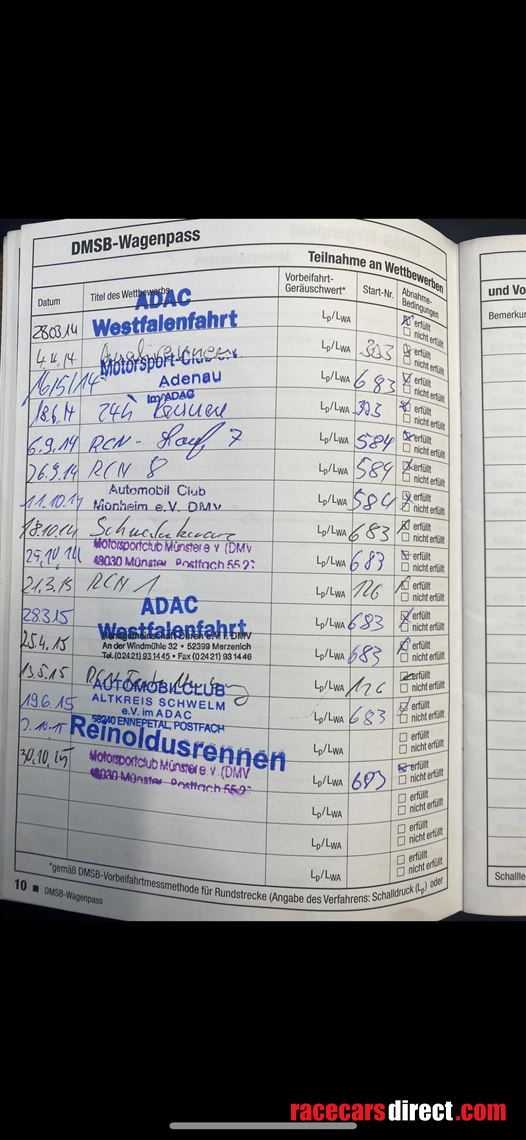 DMSB-Wagenpass
Teilnahme an Wettbewerben
Datum Titel des Wettbewerbs Vorbeifahrt-Geräuschwert* Start-Nr. Abnahme-Bedingungen
28.03.14 ADAC Westfalenfahrt Lp/LWA erfüllt nicht erfüllt
4.4.14 Lp/LWA 303 erfüllt nicht erfüllt
16/5/14 Motorsport-Club e.V. Adenau im ADAC Lp/LWA 683 erfüllt nicht erfüllt
24h Rennen Lp/LWA erfüllt nicht erfüllt
6.9.14 RCN - Lauf 7 Lp/LWA 584 erfüllt nicht erfüllt
26.9.14 RCN 8 Lp/LWA 584 erfüllt nicht erfüllt
11.10.14 Automobil Club Monheim e.V. DMV Lp/LWA 584 erfüllt nicht erfüllt
18.10.14 Lp/LWA 683 erfüllt nicht erfüllt
Motorsportclub Münster e.v. (DMV 48030 Münster Postfach Lp/LWA 683 erfüllt nicht erfüllt
21.3.15 RCN 1 Lp/LWA 126 erfüllt nicht erfüllt
28.3.15 ADAC Westfalenfahrt Lp/LWA 683 erfüllt nicht erfüllt
25.4.15 An der Windmühle 32 • 52399 Merzenich Tel. (02421) 931445 • Fax (02421) 931446 Lp/LWA 683 erfüllt nicht erfüllt
13.5.15 Lp/LWA 126 erfüllt nicht erfüllt
19.6.15 AUTOMOBILCLUB ALTKREIS SCHWELM e.V. im ADAC 58240 ENNEPETAL, POSTFACH Lp/LWA 683 erfüllt nicht erfüllt
Reinoldusrennen Lp/LWA erfüllt nicht erfüllt
30.10.15 Motorsportclub Münster e.v. (DMV 48030 Münster Postfach Lp/LWA 683 erfüllt nicht erfüllt
Lp/LWA erfüllt nicht erfüllt
Lp/LWA erfüllt nicht erfüllt
Lp/LWA erfüllt nicht erfüllt
*gemäß DMSB-Vorbeifahrtmessmethode für Rundstrecke (Angabe des Verfahrens: Schalldruck (Lp) oder
10 ■ DMSB-Wagenpass
und Vo
Bemerku
Schallle
racecarsdirect.com